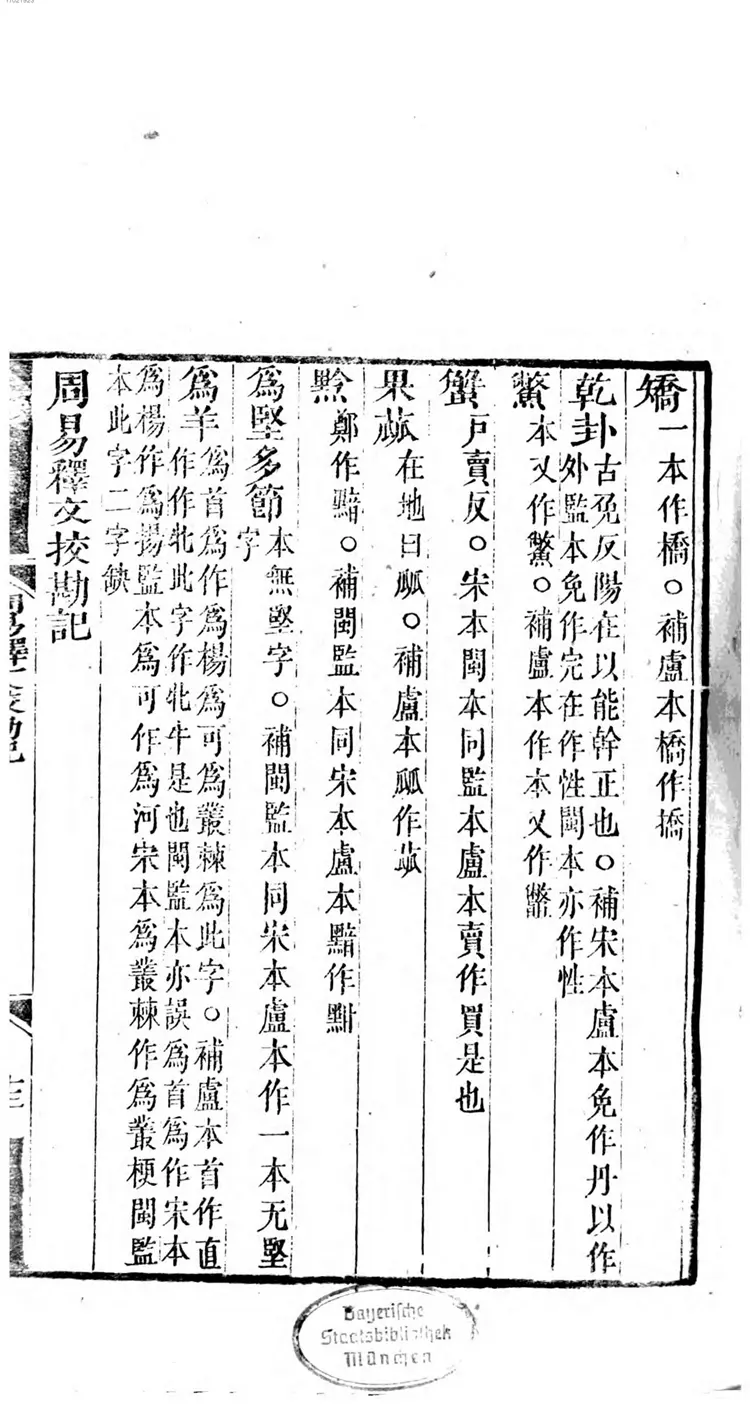 矯一本作橋○補盧本橋作撟
乾卦古免反陽在以能幹正也○補宋本盧本免作丹以作
外監本免作完在作性閩本亦作性
鱉本又作鼈○補盧本作本又作鷩
蟹戸賣反○宋本閩本同監本盧本賣作買是也
果蓏在地曰瓜○補盧本瓜作蓏
黔鄭作黯○補閩監本同宋本盧本黯作黚
爲堅多節本無堅字○補閩監本同宋本盧本作一本无堅
字
爲羊爲首爲作爲楊爲可爲叢棘爲此字○補盧本首作直
作作牝此字作牝牛是也閩監本亦誤爲首爲作宋本
爲楊作爲揚監本爲可作爲河宋本爲叢棘作爲叢梗閩監
本此字二字缺
周易釋文挍勘記
周易釋文挍勘記
十三
Bayerische
Staatsbibliothek
München